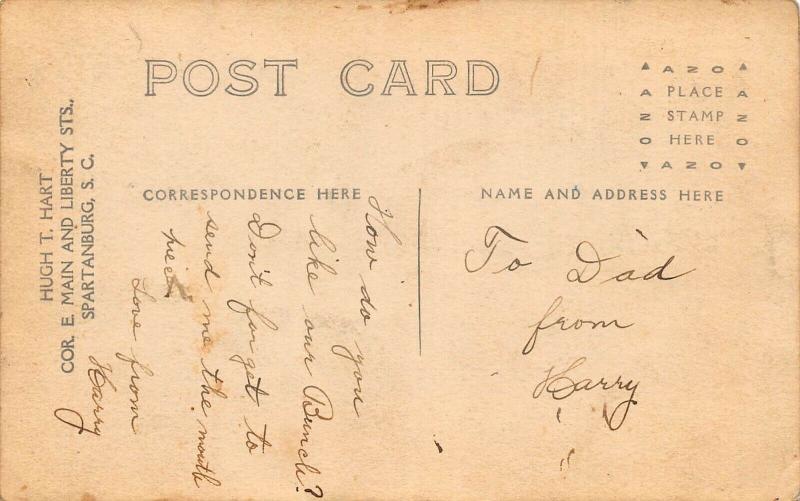 HUGH T. HART
COR. E. MAIN AND LIBERTY STS.,
SPARTANBURG, S. C.
POST CARD
CORRESPONDENCE HERE
How do you
like our Bunch?
Don't forget to
send me the mouth
piece
Love from
Harry
▲ AZO ▲
A PLACE A
Z STAMP Z
O HERE O
▼ AZO ▼
NAME AND ADDRESS HERE
To Dad
from
Harry